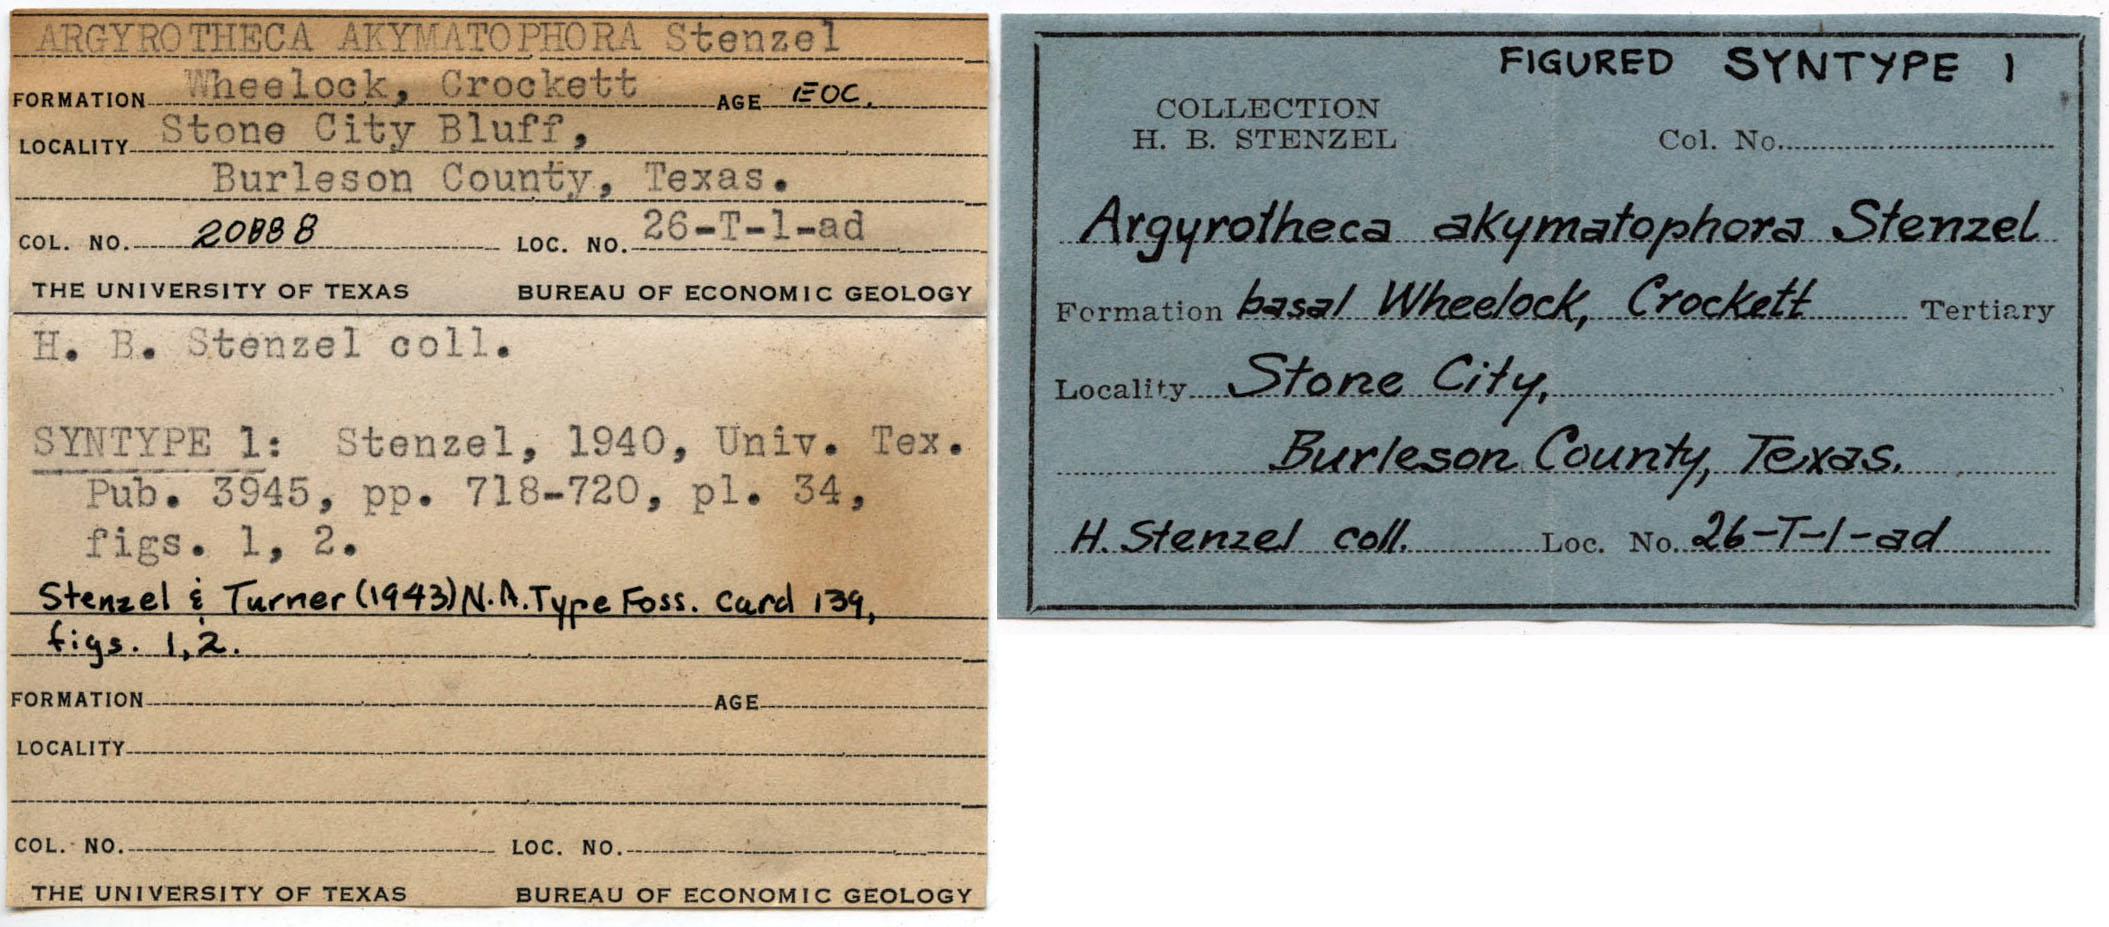 ARGYROTHECA AKYMATOPHORA Stenzel
FORMATION Wheelock, Crockett AGE EOC.
LOCALITY Stone City Bluff,
Burleson County, Texas.
COL. NO. 20888 LOC. NO. 26-T-1-ad
THE UNIVERSITY OF TEXAS BUREAU OF ECONOMIC GEOLOGY
H. B. Stenzel coll.
SYNTYPE 1: Stenzel, 1940, Univ. Tex.
Pub. 3945, pp. 718-720, pl. 34,
figs. 1, 2.
Stenzel & Turner (1943) N.A. Type Foss. Card 139,
figs. 1, 2.
FORMATION AGE
LOCALITY
COL. NO. LOC. NO.
THE UNIVERSITY OF TEXAS BUREAU OF ECONOMIC GEOLOGY
FIGURED SYNTYPE 1
COLLECTION
H. B. STENZEL Col. No.
Argyrotheca akymatophora Stenzel
Formation basal Wheelock, Crockett Tertiary
Locality Stone City,
Burleson County, Texas.
H. Stenzel coll. Loc. No. 26-T-1-ad